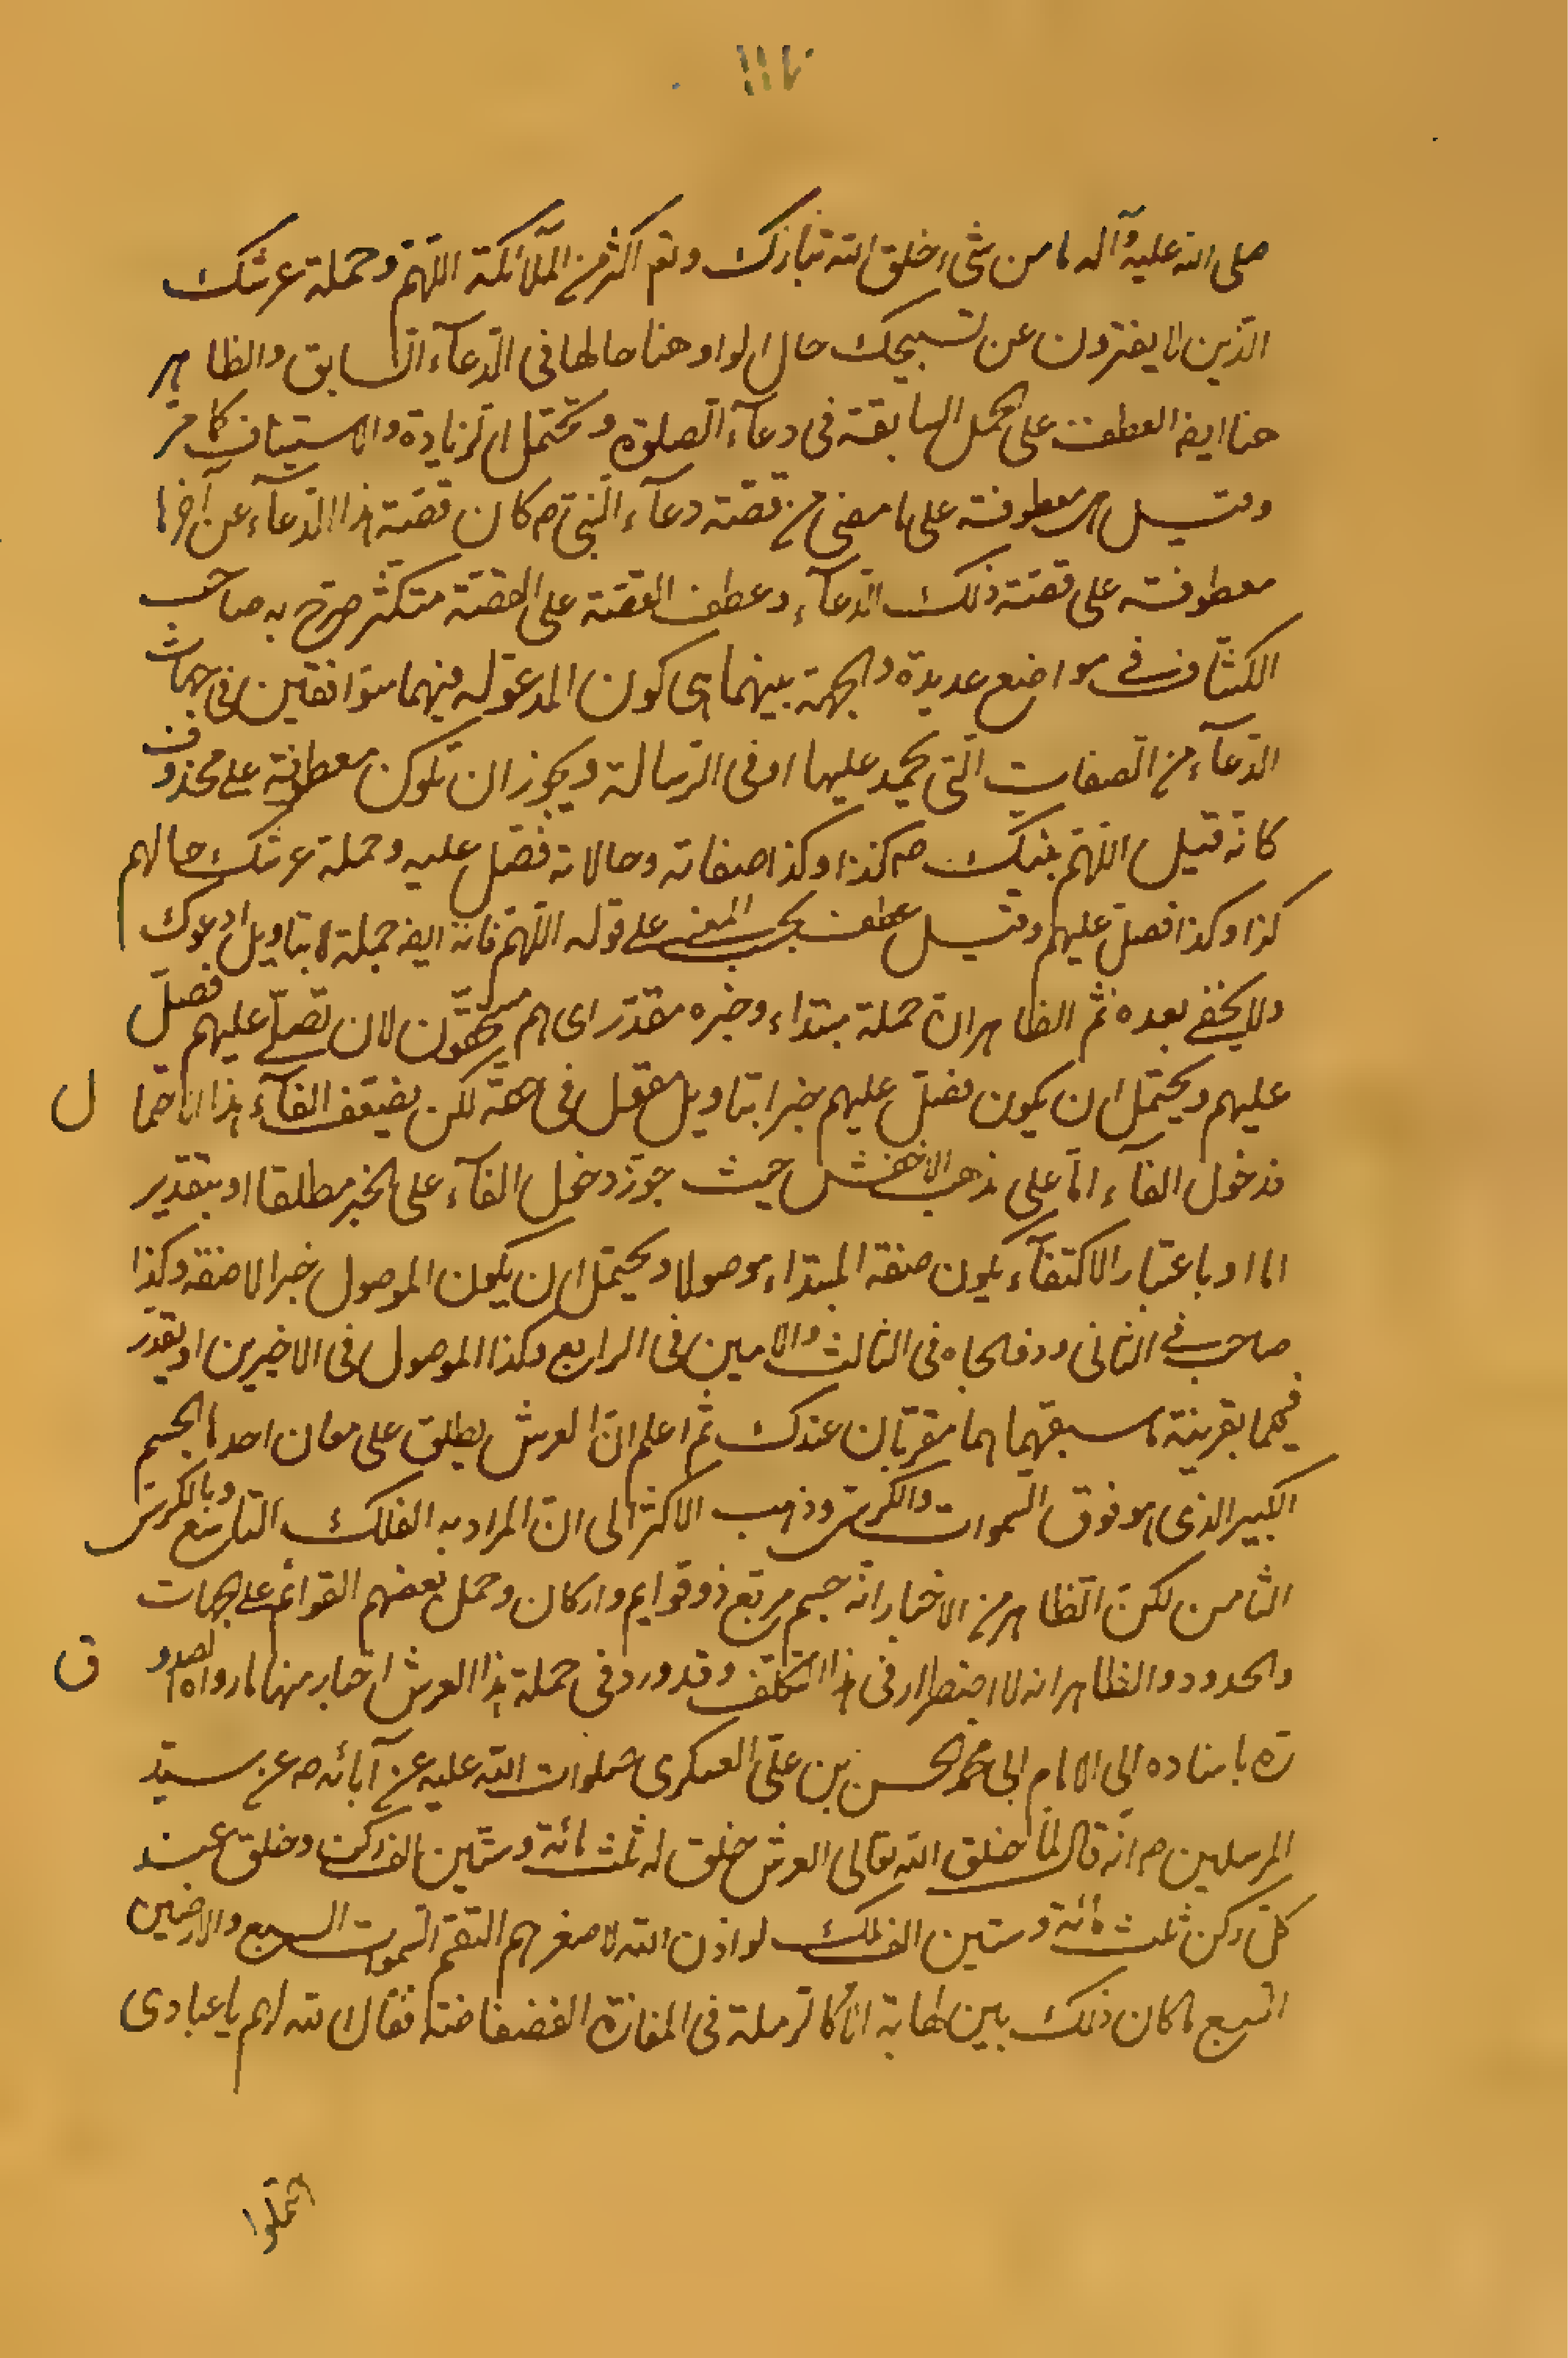 صلى الله عليه وآله ما من شىء خلق الله تبارك وتعم اكثر من الملآئكة اللهم وحملة عرشك
الذين لا يفترون عن تسبيحك حال الواو هنا حالها فى الدعآء السابق والظاهر
هنا ايضا العطف على الجمل السابقة فى دعآء الصلوة وتحتمل الزيادة والاستيناف كما مر
وقيل هى معطوفة على ما مضى من قصة دعآء النبى ص كان قصة هذا الدعآء عن آخرها
معطوفة على قصة ذلك الدعآء وعطف القصة على القصة متكثر صرح به صاحب
الكشاف فى مواضع عديدة والجهة بينهما هى كون المدعو له فيهما متوافقين فى جهات
الدعآء من الصفات التى يحمد عليها او فى الرسالة ويجوز ان تكون معطوفة على محذوف
كانه قيل اللهم نبيك ص كذا وكذا صفاته وحالاته فصل عليه وحملة عرشك حالهم
كذا وكذا فصل عليهم وقيل عطف بحسب المعنى على قوله اللهم فانه ايضا جملة بتاويل ادعوك
ولا يخفى بعده ثم الظاهر ان حملة مبتداء وخبره مقدر اى هم مستحقون لان تصلى عليهم فصل
عليهم ويحتمل ان يكون فصل عليهم خبرا بتاويل مقول فى حقه لكن يضعف الفآء هذا الاحتمال
فدخول الفآء اما على مذهب الاخفش حيث جوز دخول الفآء على الخبر مطلقا او بتقدير
اما او باعتبار الاكتفآء بكون صفة المبتداء موصولا ويحتمل ان يكون الموصول خبرا لا صفة وكذا
صاحب فى الثانى وذو الجاه فى الثالث والامين فى الرابع وكذا الموصول فى الاخيرين او يقدر
فيهما بقرينة ما سبقهما هما مقربان عندك ثم اعلم ان العرش يطلق على معان احدها الجسم
الكبير الذى هو فوق السموات والكرسى وذهب الاكثر الى ان المراد به الفلك التاسع وبالكرسى
الثامن لكن الظاهر من الاخبار انه جسم مربع ذو قوايم واركان وحمل بعضهم القوائم على الجهات
والحدود والظاهر انه لا اضطرار فى هذا التكلف وقد ورد فى حملة هذا العرش اخبار منها ما رواه الصدوق
ره باسناده الى الامام ابى محمد الحسن بن على العسكرى صلوات الله عليه عن آبائه ص عن سيد
المرسلين ص انه قال لما خلق الله تعالى العرش خلق له ثلث مائة وستين الف ركن وخلق عند
كل ركن ثلث مائة وستين الف ملك لو اذن الله لاصغرهم التقم السموات السبع والارضين
السبع ما كان ذلك بين لهاته الا كالرملة فى المفازة الفضفاضة فقال الله لهم يا عبادى
احملوا